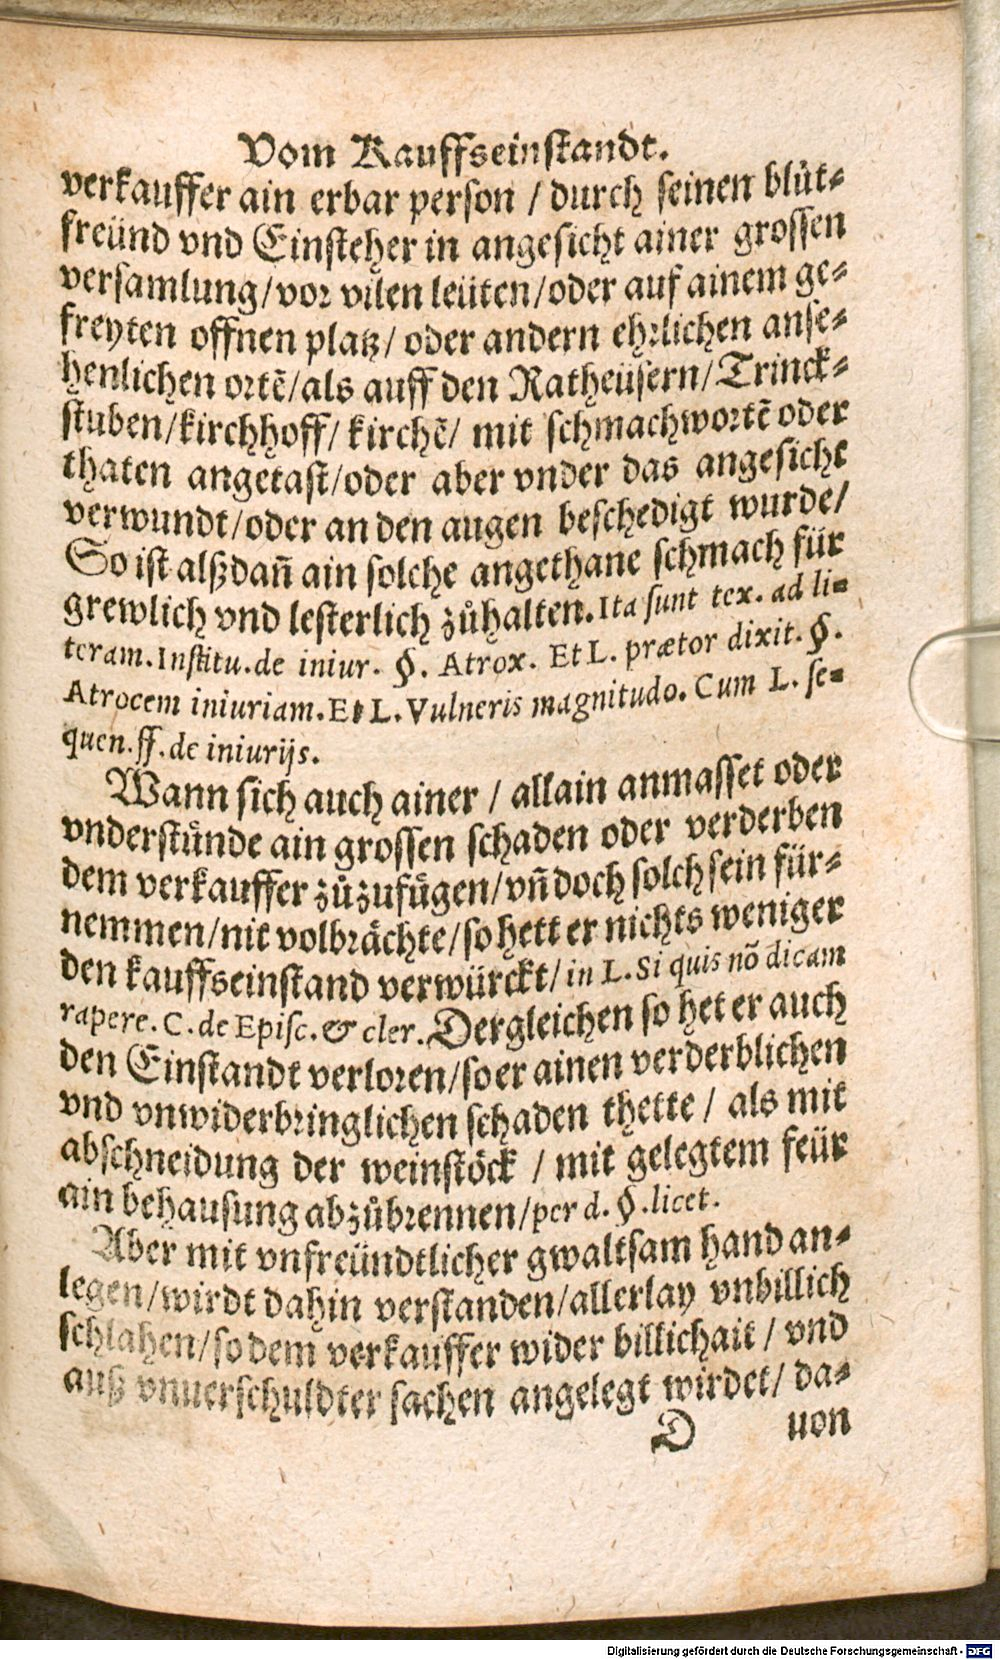 Vom Kauffseinstandt.
verkauffer ain erbar person / durch seinen blůt-
freünd vnd Einsteher in angesicht ainer grossen
versamlung/vor vilen leüten/oder auf ainem ge-
freyten offnen platz/ oder andern ehrlichen anse-
henlichen ortẽ/als auff den Ratheüsern/Trinck-
stuben/kirchhoff/ kirchẽ/ mit schmachwortẽ oder
thaten angetast/oder aber vnder das angesicht
verwundt/oder an den augen beschedigt wurde/
So ist alßdañ ain solche angethane schmach für
grewlich vnd lesterlich zůhalten. Ita sunt tex. ad li-
teram. Institu. de iniur. §. Atrox. Et L. prætor dixit. §.
Atrocem iniuriam. Et L. Vulneris magnitudo. Cum L. se-
quen. ff. de iniurijs.
Wann sich auch ainer / allain anmasset oder
vnderstůnde ain grossen schaden oder verderben
dem verkauffer zůzufůgen/vñ doch solch sein für-
nemmen/nit volbrächte/so hett er nichts weniger
den kauffseinstand verwürckt/in L. Si quis nõ dicam
rapere. C. de Episc. & cler. Dergleichen so het er auch
den Einstandt verloren/so er ainen verderblichen
vnd vnwiderbringlichen schaden thette / als mit
abschneidung der weinstöck / mit gelegtem feür
ain behausung abzůbrennen/per d. §. licet.
Aber mit vnfreündtlicher gwaltsam hand an-
legen/wirdt dahin verstanden/allerlay vnbillich
schlahen/so dem verkauffer wider billichait / vnd
auß vnuerschuldter sachen angelegt wirdet/ da-
D uon
Digitalisierung gefördert durch die Deutsche Forschungsgemeinschaft - DFG